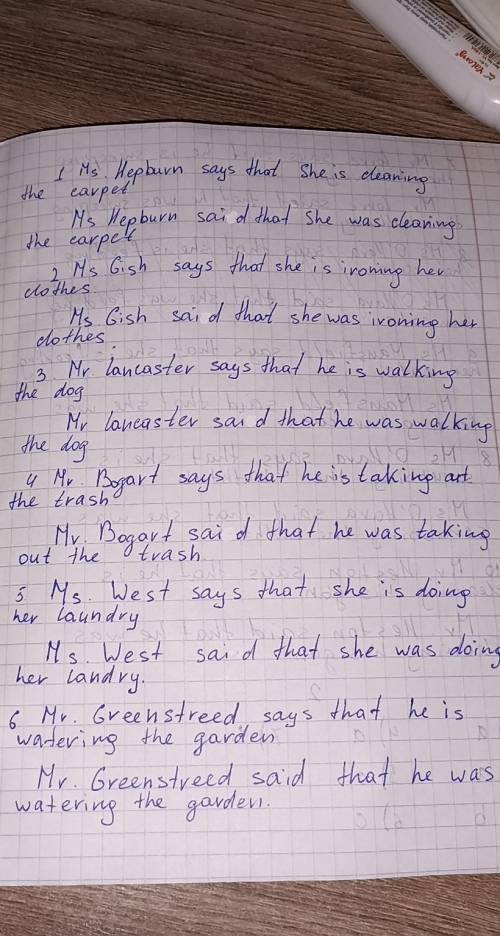 1 Ms. Hepburn says that she is cleaning
the carpet
Ms Hepburn said that she was cleaning
the carpet
2 Ms Gish says that she is ironing her
clothes.
Ms Gish said that she was ironing her
clothes.
3 Mr lancaster says that he is walking
the dog
Mr lancaster said that he was walking
the dog
4 Mr. Bogart says that he is taking out
the trash
Mr. Bogart said that he was taking
out the trash
5 Ms. West says that she is doing
her laundry
Ms. West said that she was doing
her landry.
6 Mr. Greenstreed says that he is
watering the garden
Mr. Greenstreed said that he was
watering the garden.